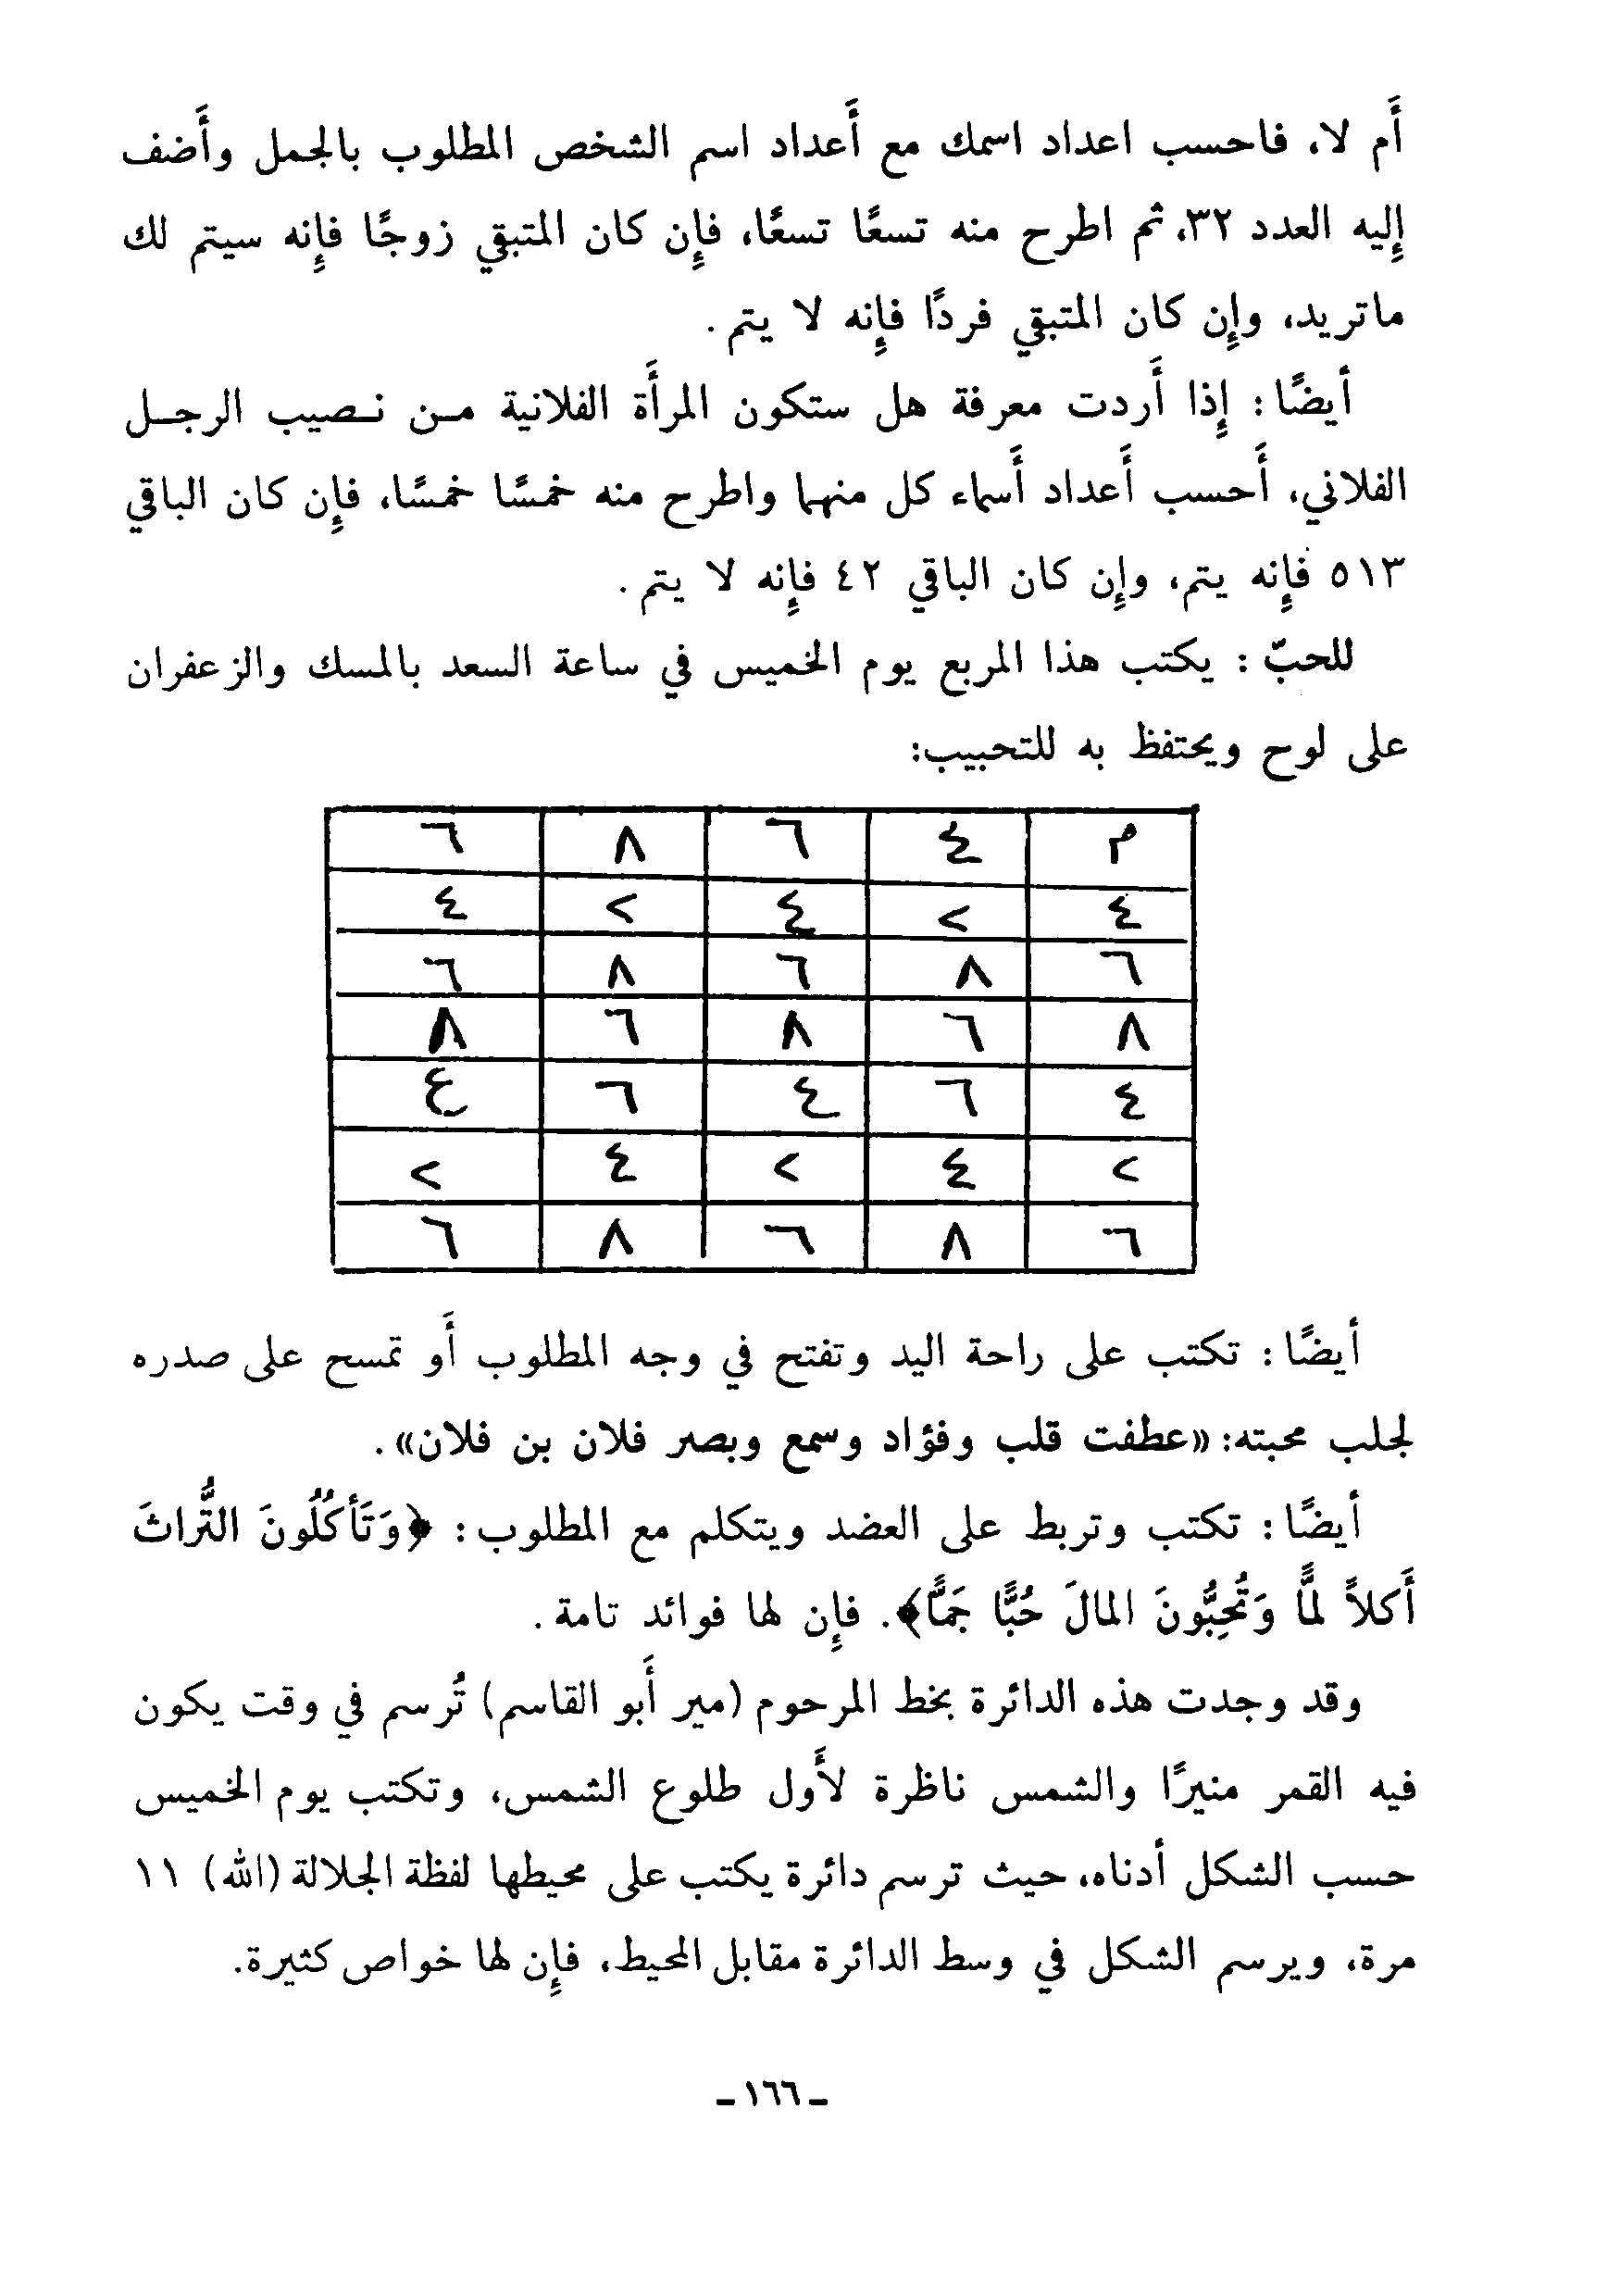 أَم لا، فاحسب اعداد اسمك مع أَعداد اسم الشخص المطلوب بالجمل وأَضف
إِليه العدد ٣٢، ثم اطرح منه تسعًا تسعًا، فإِن كان المتبقي زوجًا فإِنه سيتم لك
ماتريد، وإِن كان المتبقي فردًا فإِنه لا يتم.
أَيضًا: إِذا أَردت معرفة هل ستكون المرأَة الفلانية من نصيب الرجل
الفلاني، أَحسب أَعداد أَسماء كل منهما واطرح منه خمسًا خمسًا، فإِن كان الباقي
٥١٣ فإِنه يتم، وإِن كان الباقي ٤٢ فإِنه لا يتم.
للحبّ: يكتب هذا المربع يوم الخميس في ساعة السعد بالمسك والزعفران
على لوح ويحتفظ به للتحبيب:
م ٤ ٦ ٨ ٦
٤ > ٤ > ٤
٦ ٨ ٦ ٨ ٦
٨ ٦ ٨ ٦ ٨
٤ ٦ ٤ ٦ ع
> ٤ > ٤ >
٦ ٨ ٦ ٨ ٦
أَيضًا: تكتب على راحة اليد وتفتح في وجه المطلوب أَو تمسح على صدره
لجلب محبته: «عطفت قلب وفؤاد وسمع وبصر فلان بن فلان».
أَيضًا: تكتب وتربط على العضد ويتكلم مع المطلوب: ﴿وَتَأكُلُونَ التُّراثَ
أَكلاً لمًّا وَتُحِبُّونَ المالَ حُبًّا جَمًّا﴾. فإِن لها فوائد تامة.
وقد وجدت هذه الدائرة بخط المرحوم (مير أَبو القاسم) تُرسم في وقت يكون
فيه القمر منيرًا والشمس ناظرة لأَول طلوع الشمس، وتكتب يوم الخميس
حسب الشكل أدناه، حيث ترسم دائرة يكتب على محيطها لفظة الجلالة (الله) ١١
مرة، ويرسم الشكل في وسط الدائرة مقابل المحيط، فإِن لها خواص كثيرة.
ـ ١٦٦ ـ